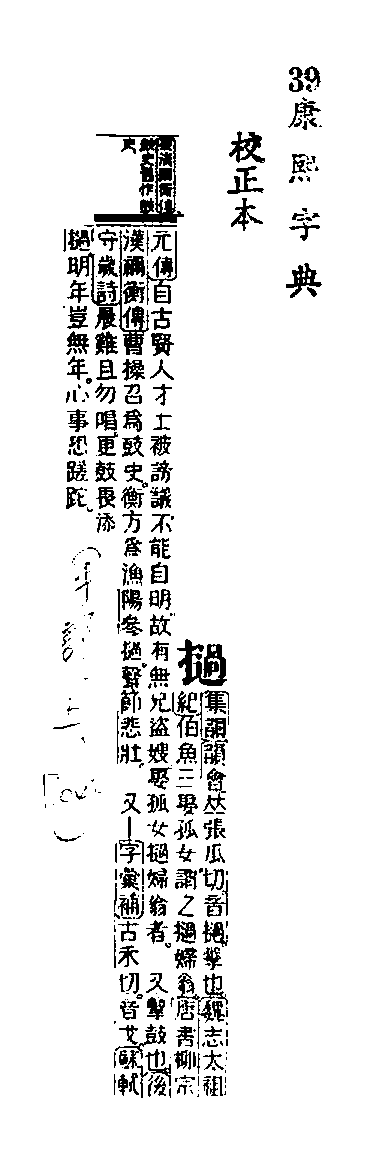 39康熙字典
校正本
撾
集韻韻會𠀤張瓜切音撾擊也魏志太祖
紀伯魚三娶孤女謂之撾婦翁唐書柳宗
元傳自古賢人才士被謗議不能自明故有無兄盜嫂娶孤女撾婦翁者又擊鼓也後
漢禰衡傳曹操召爲鼓史衡方爲漁陽參撾聲節悲壯又丨字彙補古禾切音戈蘇軾
守歲詩晨雞且勿唱更鼓畏添
撾明年豈無年心事恐蹉跎